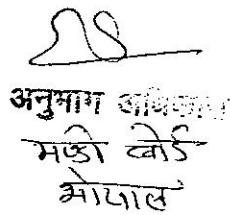 अनुभाग अधिकारी
मण्डी बोर्ड
भोपाल